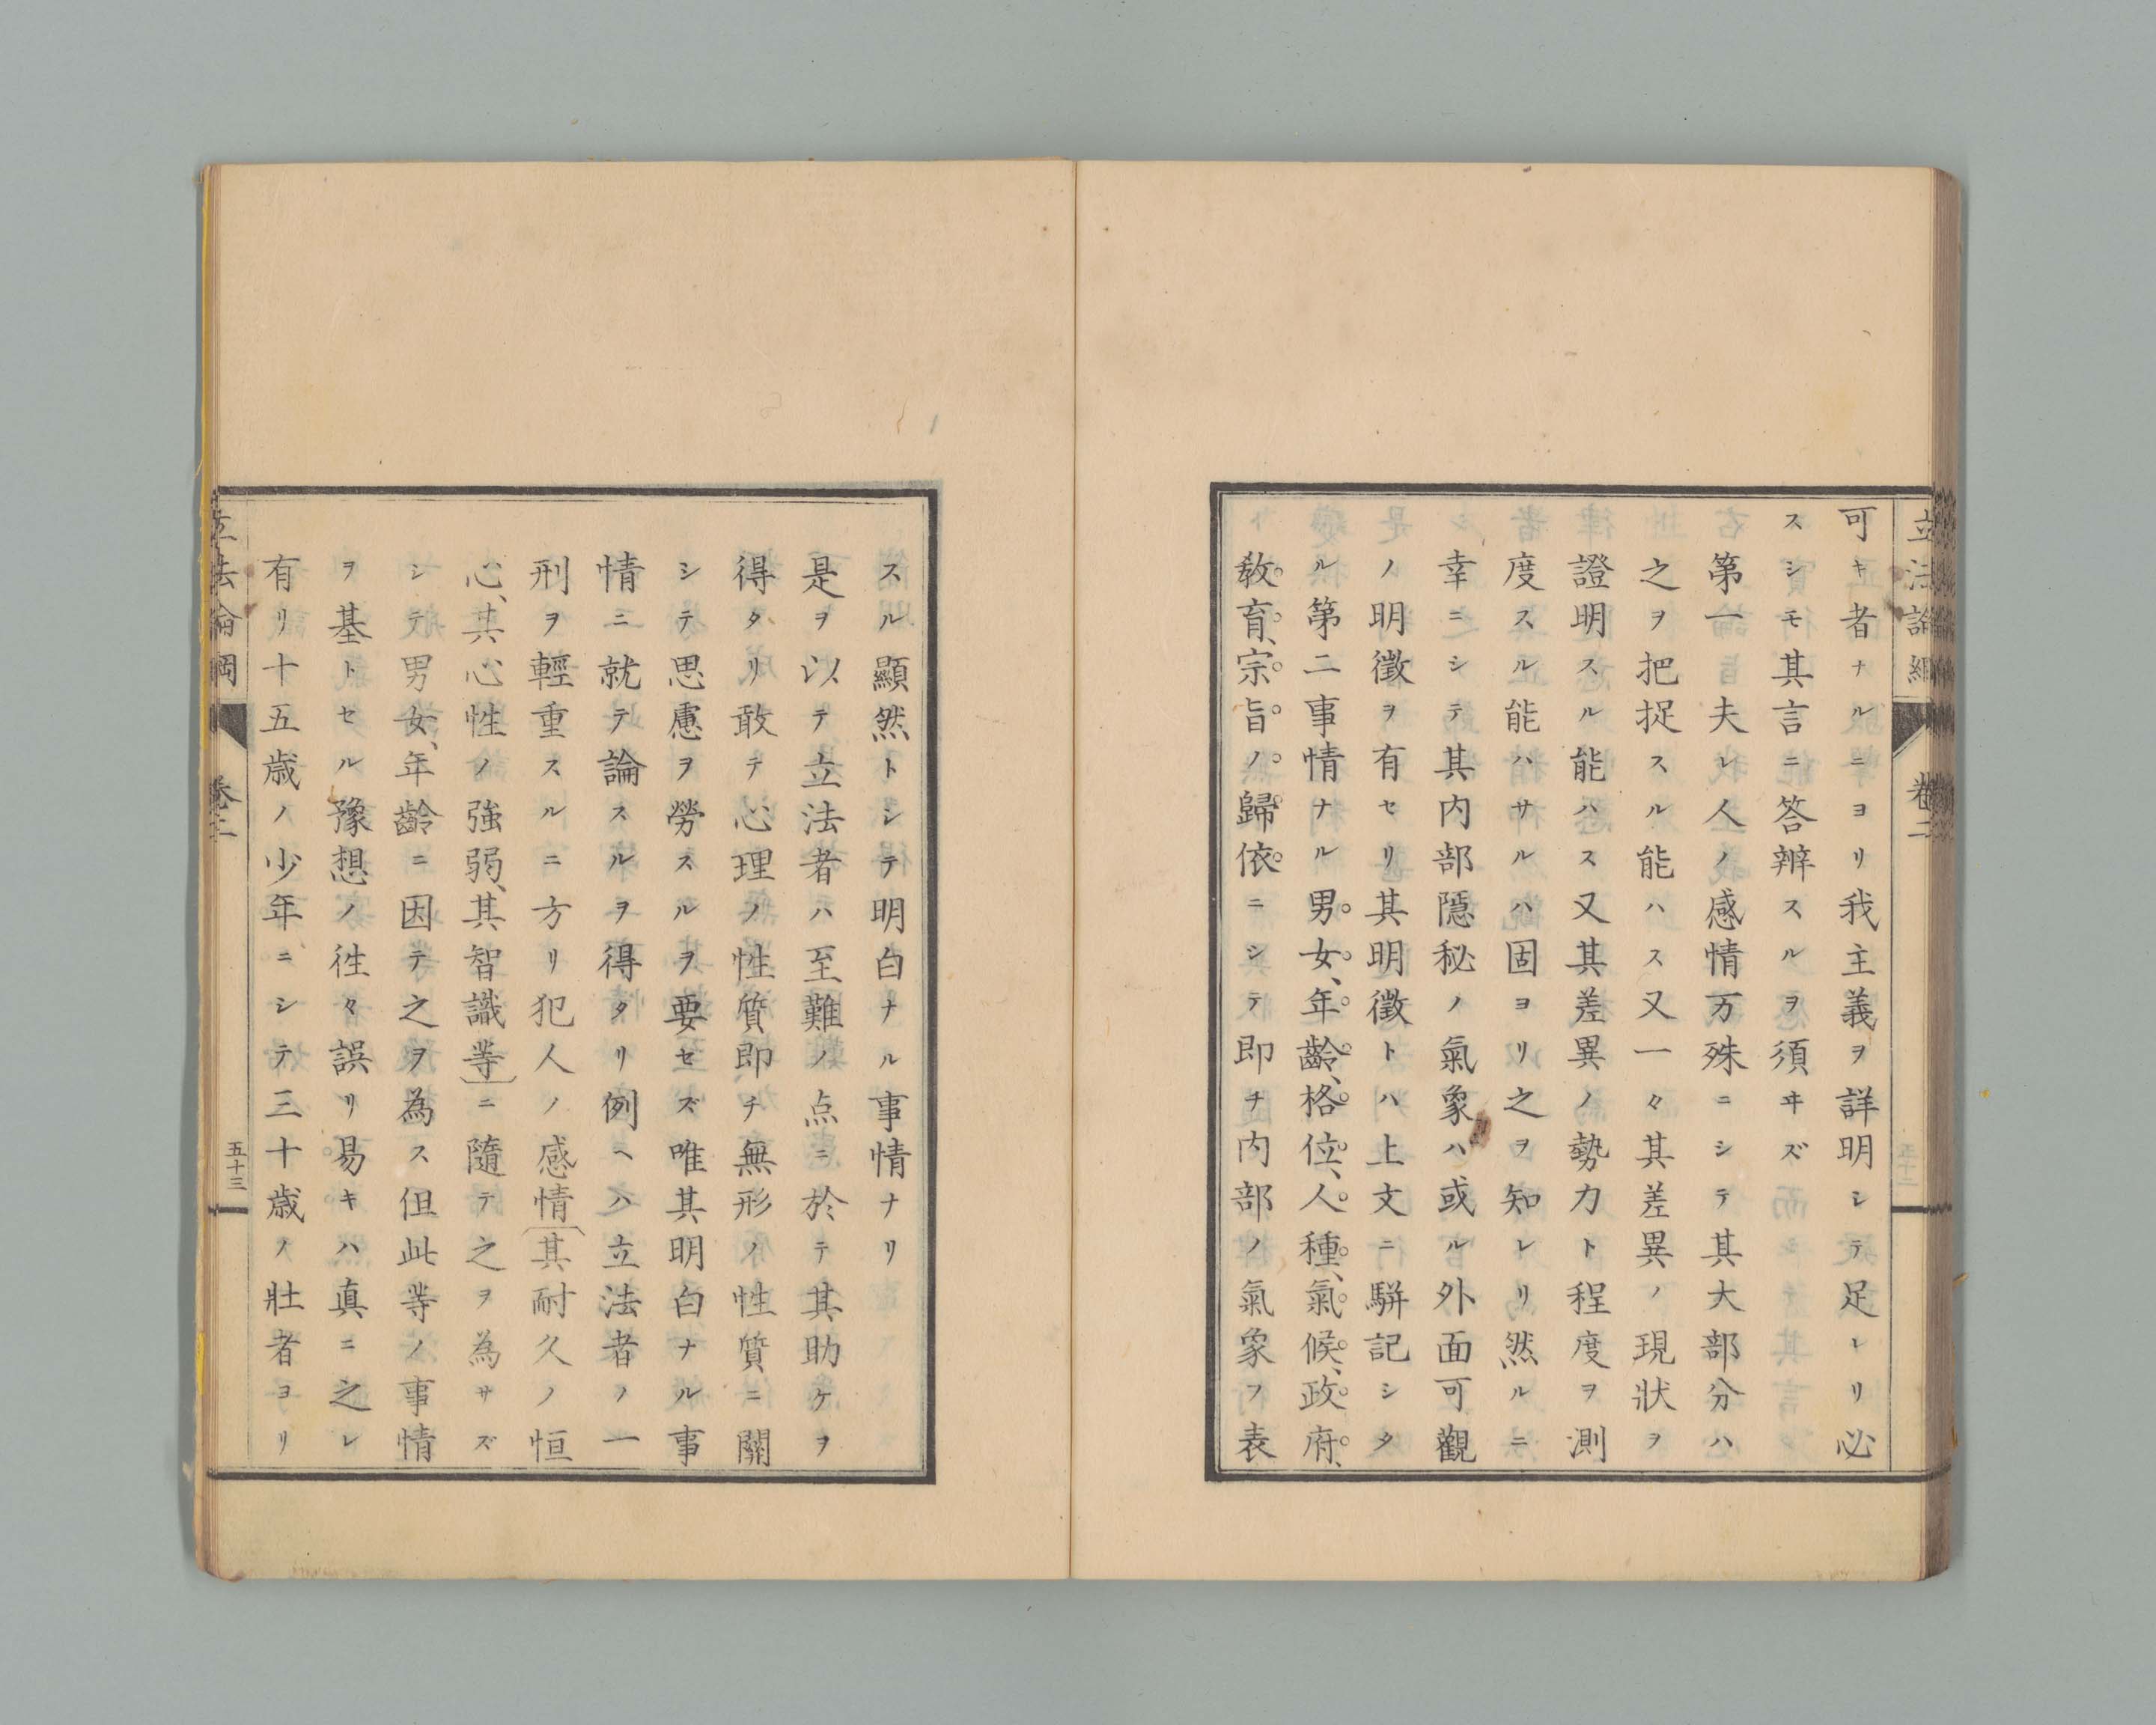 立法論綱 卷二
可キ者ナルニヨリ我主義ヲ詳明シテ足レリ必
スシモ其言ニ答辨スルヲ須ヰズ
第一 夫レ人ノ感情万殊ニシテ其大部分ハ
之ヲ把捉スル能ハス又一々其差異ノ現狀ヲ
證明スル能ハス又其差異ノ勢力ト程度ヲ測
度スル能ハサルハ固ヨリ之ヲ知レリ然ルニ
幸ニシテ其内部隱秘ノ氣象ハ或ル外面可觀
ノ明徵ヲ有セリ其明徵トハ上文ニ駢記シタ
ル第二事情ナル男女、年齡、格位、人種、氣候、政府、
敎育、宗旨ノ歸依ニシテ即チ内部ノ氣象ヲ表
スル顯然トシテ明白ナル事情ナリ
是ヲ以テ立法者ハ至難ノ点ニ於テ其助ケヲ
得タリ敢テ心理ノ性質即チ無形ノ性質ニ關
シテ思慮ヲ勞スルヲ要セズ唯其明白ナル事
情ニ就テ論スルヲ得タリ例ヘハ立法者ノ一
刑ヲ輕重スルニ方リ犯人ノ感情(其耐久ノ恒
心、其心性ノ強弱、其智識等)ニ隨テ之ヲ為サズ
シテ男女、年齡ニ因テ之ヲ為ス但此等ノ事情
ヲ基トセル豫想ノ徃々誤リ易キハ真ニ之レ
有リ十五歳ノ少年ニシテ三十歳ノ壯者ヨリ
立法論綱 卷二 五十三